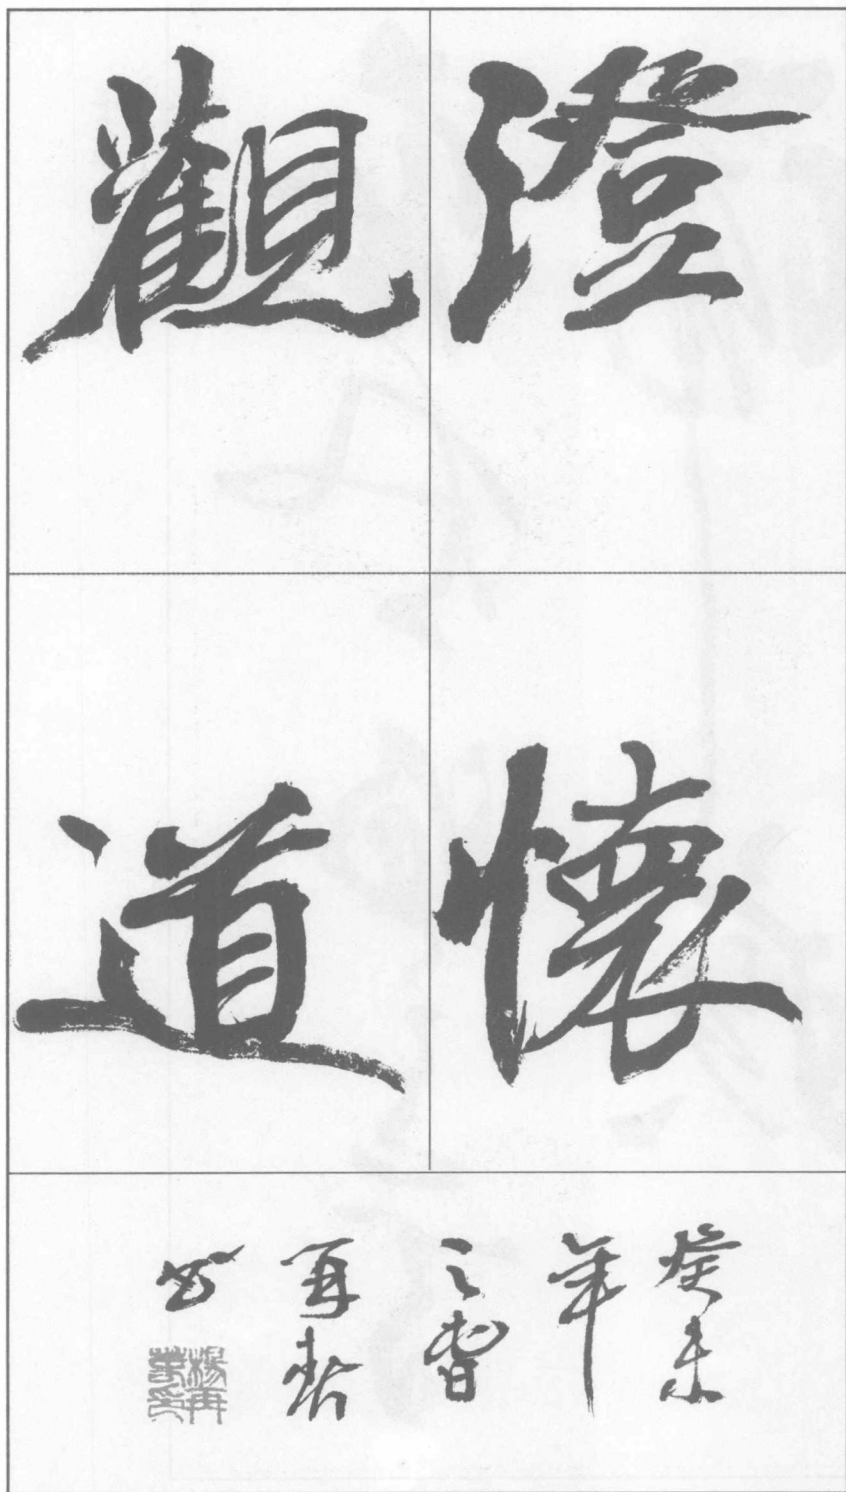 澄懷
觀道
癸未
年
之春
再春
書
楊再春印